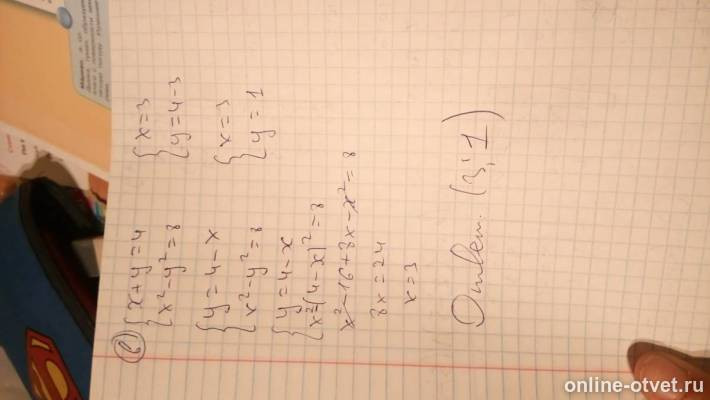 в) { x + y = 4
{ x² - y² = 8
{ y = 4 - x
{ x² - y² = 8
{ y = 4 - x
{ x² - (4 - x)² = 8
x² - 16 + 8x - x² = 8
8x = 24
x = 3
{ x = 3
{ y = 4 - 3
{ x = 3
{ y = 1
Ответ. (3; 1)
online-otvet.ru